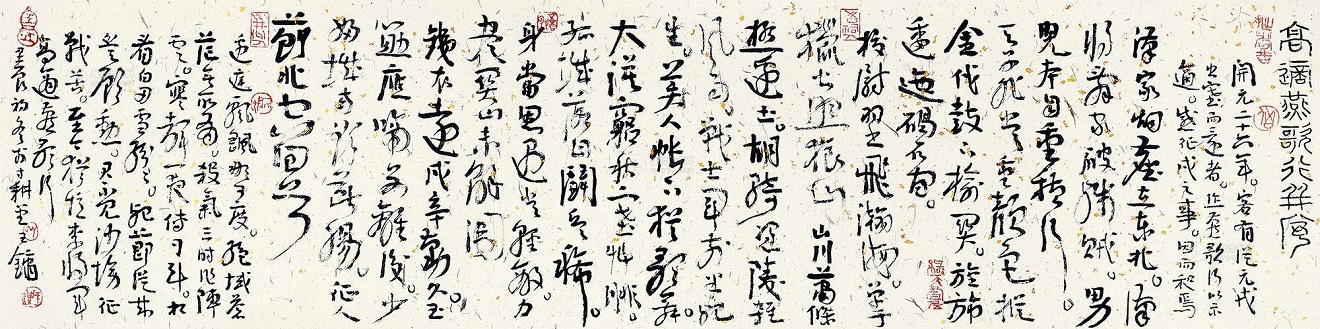 高適燕歌行并序
開元二十六年。客有從元戎
出塞而還者。作燕歌行以示
適。感征戍之事。因而和焉
漢家烟塵在東北。漢
將辭家破殘賊。男
兒本自重橫行。
天子非常賜顏色。摐
金伐鼓下榆關。旌旆
逶迤碣石間。
校尉羽飛瀚海。單于
獵火照狼山 山川蕭條
極邊土。胡騎憑陵雜
風雨。戰士軍前半死
生。美人帳下猶歌舞。
大漠窮秋塞草腓。
孤城落日鬭兵稀。
身當恩遇常輕敵。力
盡關山未解圍
鐵衣遠戍辛勤久。玉
筯應啼別離後。少
婦城南欲斷腸。征人
薊北空回首
邊庭飄飖那可度。絕域蒼
茫無所有。殺氣三時作陣
雲。寒聲一夜傳刁斗。相
看白刃雪紛紛。死節從來
豈顧勳。君不見沙場征
戰苦。至今猶憶李將軍
高適燕歌行